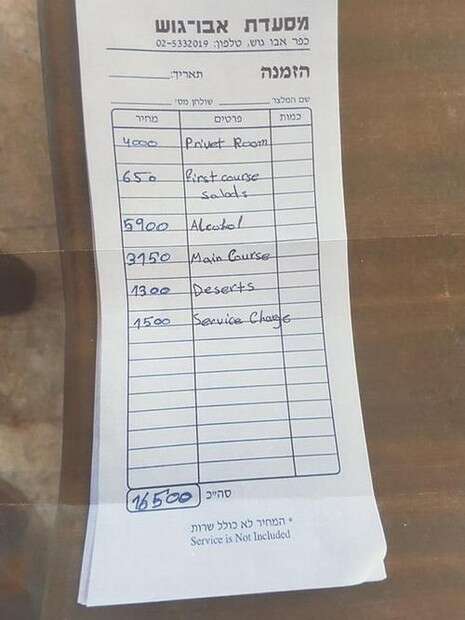 מסעדת אבו-גוש
כפר אבו גוש, טלפון: 02-5332019
הזמנה תאריך:
שם המלצר שולחן מס'
כמות פרטים מחיר
4000 Privet Room
650 First course
Salads
5900 Alcohol
3150 Main Course
1300 Deserts
1500 Service Charge
סה"כ 16500
* המחיר לא כולל שרות
Service is Not Included